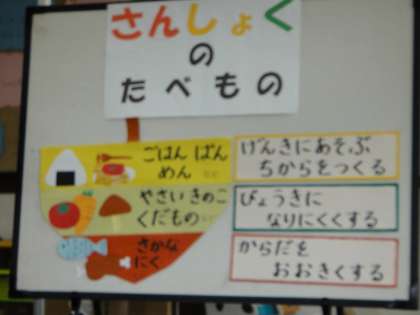 さんしょく
の
たべもの
ごはん ぱん
めん
げんきにあそぶ
ちからをつくる
やさい きのこ
くだもの
びょうきに
なりにくくする
さかな
にく
からだを
おおきくする